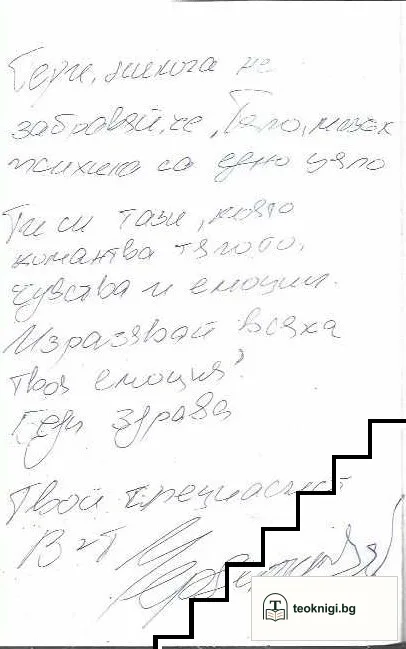 Гери, никога не
забравяй, че, Тяло, мозък
психика са едно цяло
Ти си тази, която
командва тялото,
чувства и емоции.
Изразявай всяка
твоя емоция!
Бъди здрава
Твой специалист
teoknigi.bg